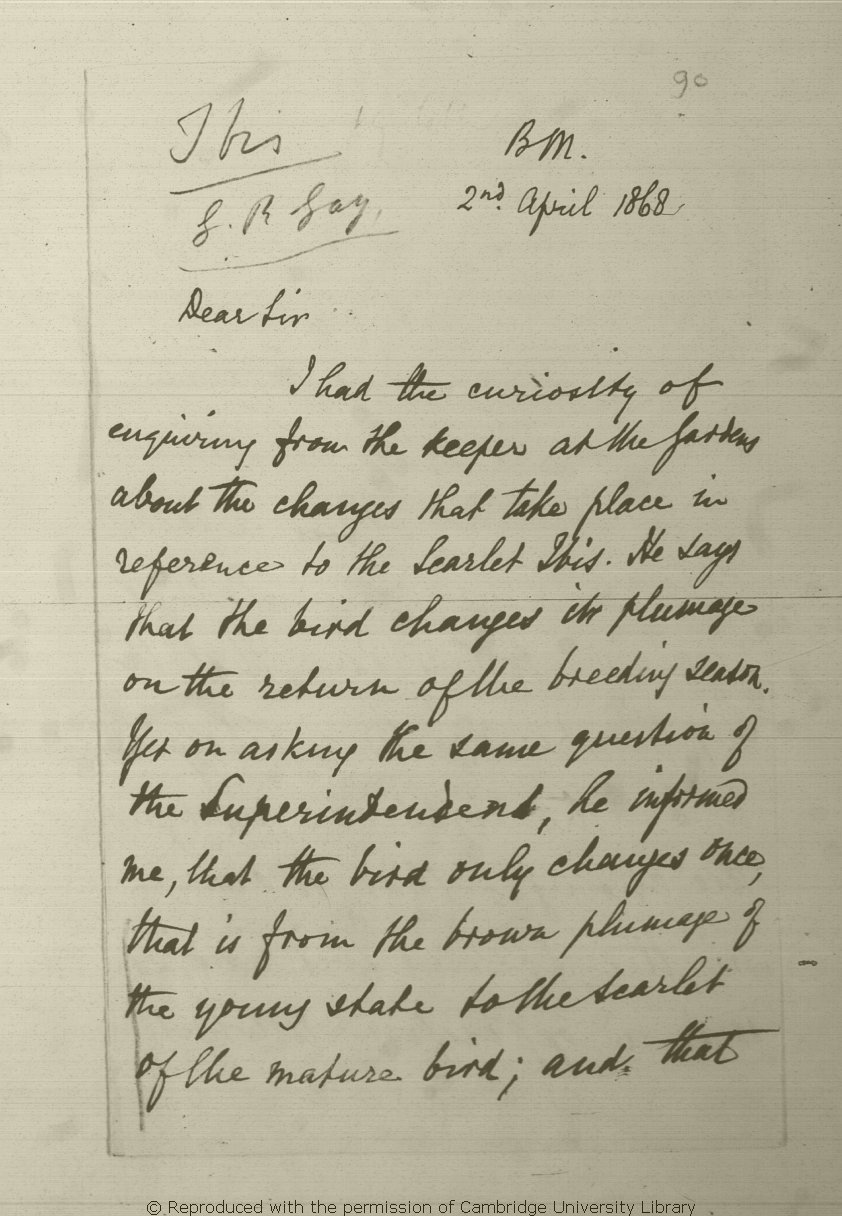 90
Ibis
B M.
G. R Gray,
2nd. April 1868
Dear Sir
I had the curiosity of
enquiring from the keeper at the Gardens
about the changes that take place in
reference to the Scarlet Ibis. He says
that the bird changes its plumage
on the return of the breeding season.
Yet on asking the same question of
the Superintendent, he informed
me, that the bird only changes once,
that is from the brown plumage of
the young state to the scarlet
of the mature bird; and that
© Reproduced with the permission of Cambridge University Library